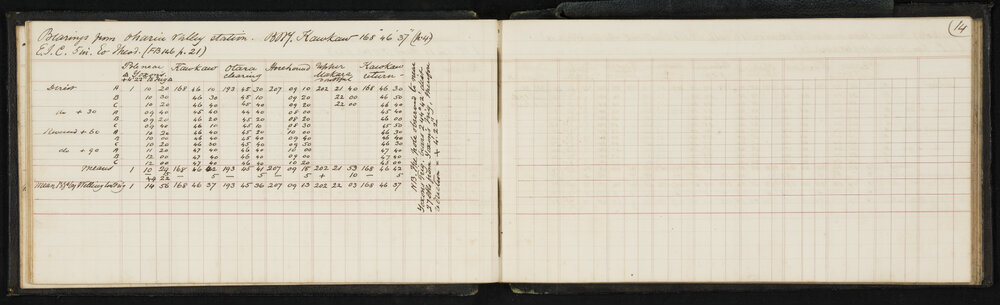 (14)
Bearings from Ohariu Valley station. BDY. Kaukau 168° 46' 37" (p4)
E.I.C. 5 in. Eo Theod. (FB 146 p. 21)
Pole near Kaukau Otara Horehound Upper Kaukau
clearing Makara return
Direct A 1 10 20 168 46 10 193 45 30 207 09 10 202 21 40 168 46 30
B 10 30 46 30 45 10 09 20 22 00 46 50
C 10 20 46 40 44 40 09 10 22 00 46 40
do + 30 A 09 40 45 40 44 40 08 00 45 40
B 09 20 46 20 45 20 08 20 46 00
C 09 40 46 00 45 10 08 30 45 50
Reversed + 60 A 10 20 46 40 45 20 10 00 46 30
B 10 00 46 40 45 40 09 40 46 40
C 10 20 46 40 45 40 09 00 46 30
do + 90 A 11 20 47 40 46 40 10 00 47 40
B 12 00 47 40 46 40 09 00 47 00
C 12 00 47 40 46 40 10 20 45 00
Means 1 10 168 46 193 45 41 207 09 18 202 21 53 168 46 42
4 22 — 5 — 5 — 5 + 10 — 5
Mean 1 14 56 168 46 37 193 45 36 207 09 13 202 22 03 168 46 37
N.B. The pole observed to near